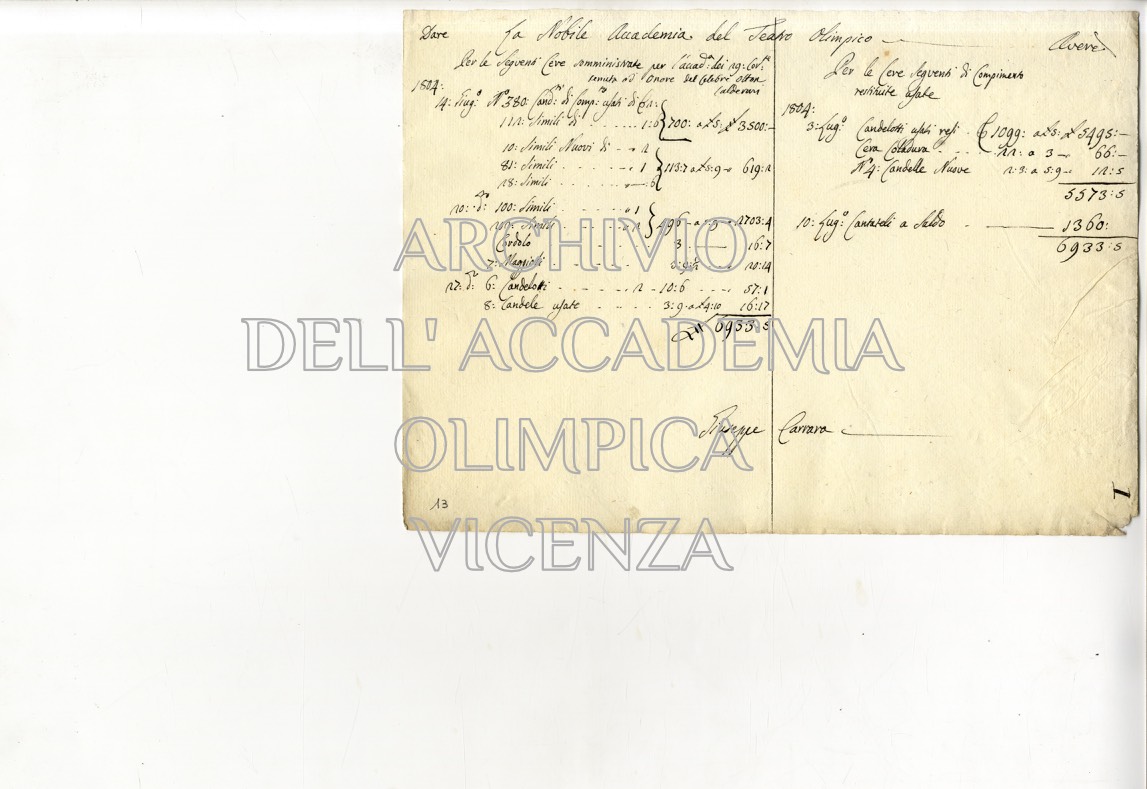 Dare La Nobile Accademia del Teatro Olimpico Avere
Per le Seguenti Cere somministrate per l'accad:ª dei
tenuta ad Onore del Celebre Otton
Calderari
1804:
14: Giug:º Nº 380: Cand:ti di Comp:to usati di
112: Simili di 1:6 700: a £5: £ 3500:
10: Simili Nuovi di 2
81: Simili 1 113:7 a £5:9 619:2
28: Simili :6
20: dº 100: Simili 1
Simili 2 496 a £5 2703:4
Cordolo 3 16:7
7: 20:14
27: dº 6: Candelotti 2 10:6 57:1
8: Candele usate 3:9 a £4:10 16:17
6933:5
Per le Cere Seguenti di Compimento
restituite usate
1804:
3: Lug:º Candelotti usati resi 1099: a £5: £ 5495:
Cera Colladura 22: a 3 66:
Nº 4: Candelle Nuove 2:3: a 5:9 12:5
5573:5
10: Lug:º Contateli a Saldo 1360:
6933:5
Giuseppe Carrara
13
1
ARCHIVIO
DELL' ACCADEMIA
OLIMPICA
VICENZA